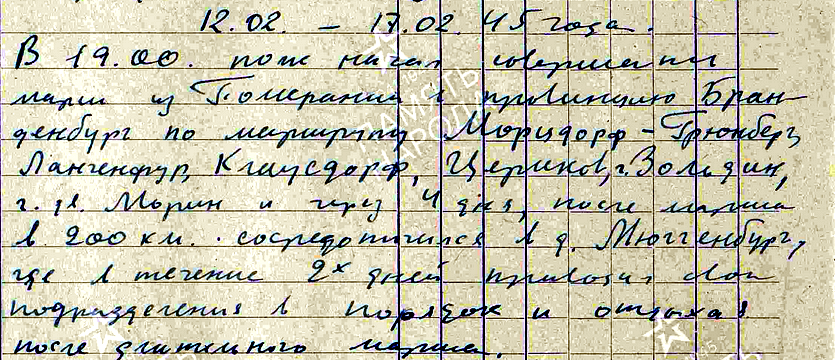 12.02. – 17.02.45 года.
В 19.00. полк начал совершать
марш из Померании в провинцию Бран-
денбург по маршруту Морцдорф – Грюнберг,
Лангенфур, Клаусдорф, Церников, г. Вольдин,
г. Морин и через 4 дня, после марша
в 200 км. сосредоточился в д. Мюггенбург,
где в течение 2х дней приводил свои
подразделения в порядок и отдыхал
после длительного марша.